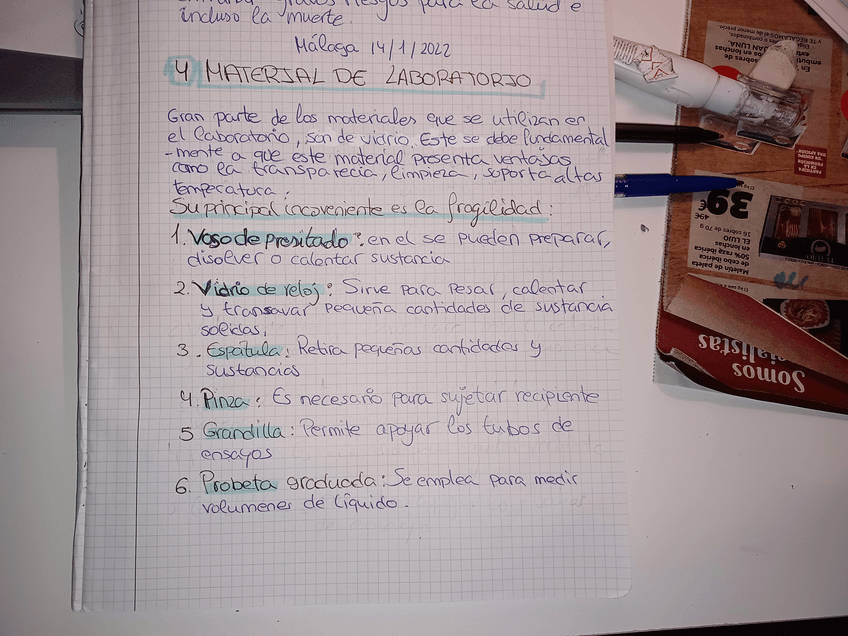 graves riesgos para la salud e
incluso la muerte.
Málaga 14/1/2022
4 MATERIAL DE LABORATORIO
Gran parte de los materiales que se utilizan en
el laboratorio, son de vidrio. Este se debe fundamental
-mente a que este material presenta ventajas
como la transparecia, limpieza, soporta altas
temperatura.
Su principal incoveniente es la fragilidad:
1. Vaso de presitado: en el se pueden preparar,
disolver o calentar sustancia
2. Vidrio de reloj: Sirve para pesar, calentar
y transavar pequeña cantidades de sustancia
solidas,
3. Espátula: Retira pequeñas cantidades y
sustancias
4. Pinza: Es necesario para sujetar recipiente
5 Grandilla: Permite apoyar los tubos de
ensayos
6. Probeta graduada: Se emplea para medir
volumenes de líquido.
Y TE REGALAMOS
JUAN LUNA.
En sobres de
embutidos
en lonchas
39
49€
16 sobres de 70 g
EL LUJO
en lonchas
50% raza ibérica
de cebo ibérica
Maletín de paleta
Somos